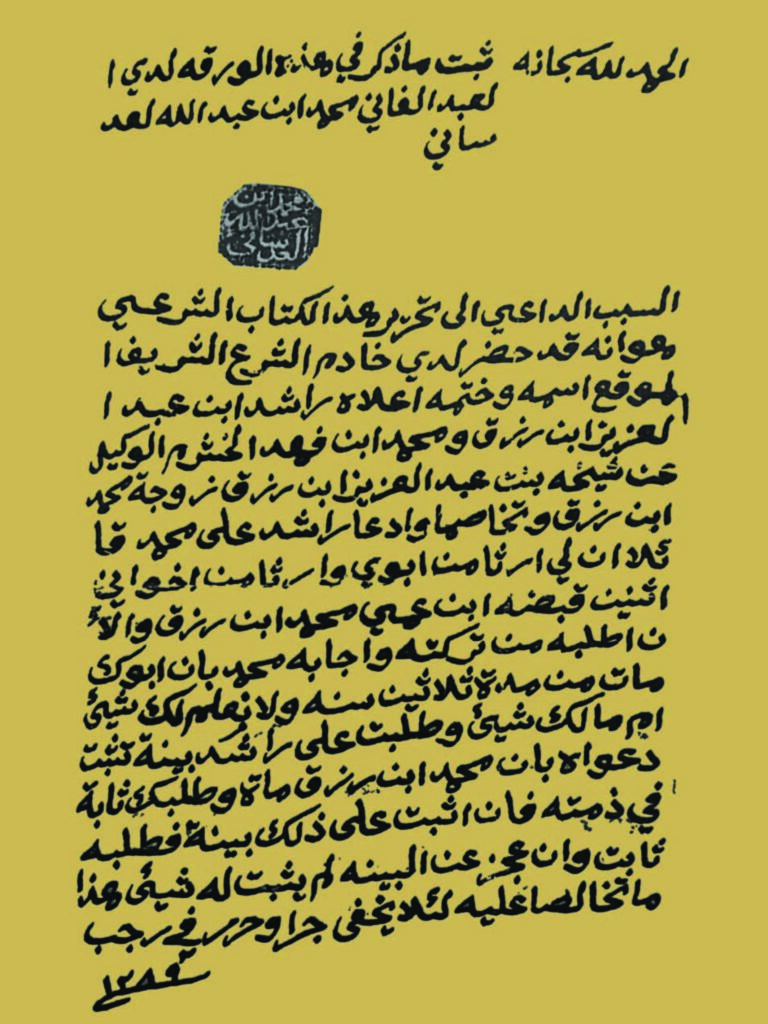 الحمد لله سبحانه ثبت ماذكر في هذه الورقه لدي ا
لعبد الفاني محمد ابن عبد الله لعد
ساني
محمد ابن
عبد الله
العدساني
السبب الداعي الى تحرير هذا الكتاب الشرعي
هو انه قد حضر لدي خادم الشرع الشريف ا
لموقع اسمه وختمه اعلاه راشد ابن عبد ا
لعزيز ابن رزق ومحمد ابن فهد الخشرم الوكيل
عن شيخه بنت عبد العزيز ابن رزق زوجة محمد
ابن رزق وتخاصما وادعا راشد على محمد قا
ئلا ان لي ارثا من ابوي وارثا من اخواني
اثنين قبضه ابن عمي محمد ابن رزق والآ
ن اطلبه من تركته واجابه محمد بان ابوك
مات من مدة ثلاثين سنه ولا نعلم لك شيئ
ام مالك شيئ وطلبت على راشد بينة تثبت
دعواه بان محمد ابن رزق ماة وطلبك ثابة
في ذمته فان اثبت على ذلك بينة فطلبه
ثابت وان عجز عن البينه لم يثبت له شيئ هذا
ما تخالصا عليه لئلا يخفى جرا وحرر في رجب
١٢٨٩